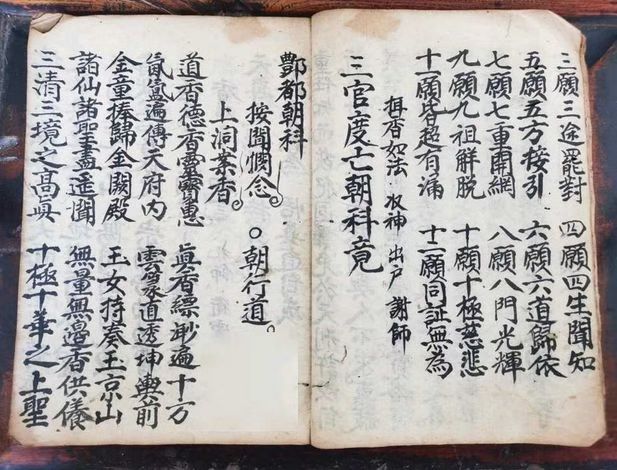 三願三途罷對 四願四生聞知
五願五方接引 六願六道歸依
七願七重開網 八願八門光輝
九願九祖觧脫 十願十極慈悲
十一願皆超有漏 十二願同証無為
如法 收神 出戶 謝師
三官度亡朝科竟
酆都朝科
按聞憫念。朝行道。
上洞案香。
道香德香靈寶惠 眞香縹緲遍十方
氤氳遍傳天府內 雲篆道透坤輿前
金童捧歸金闕殿 玉女持奏玉京山
諸仙諸聖盡遥聞 無量無邉香供儀
三清三境之髙眞 十極十華之上聖